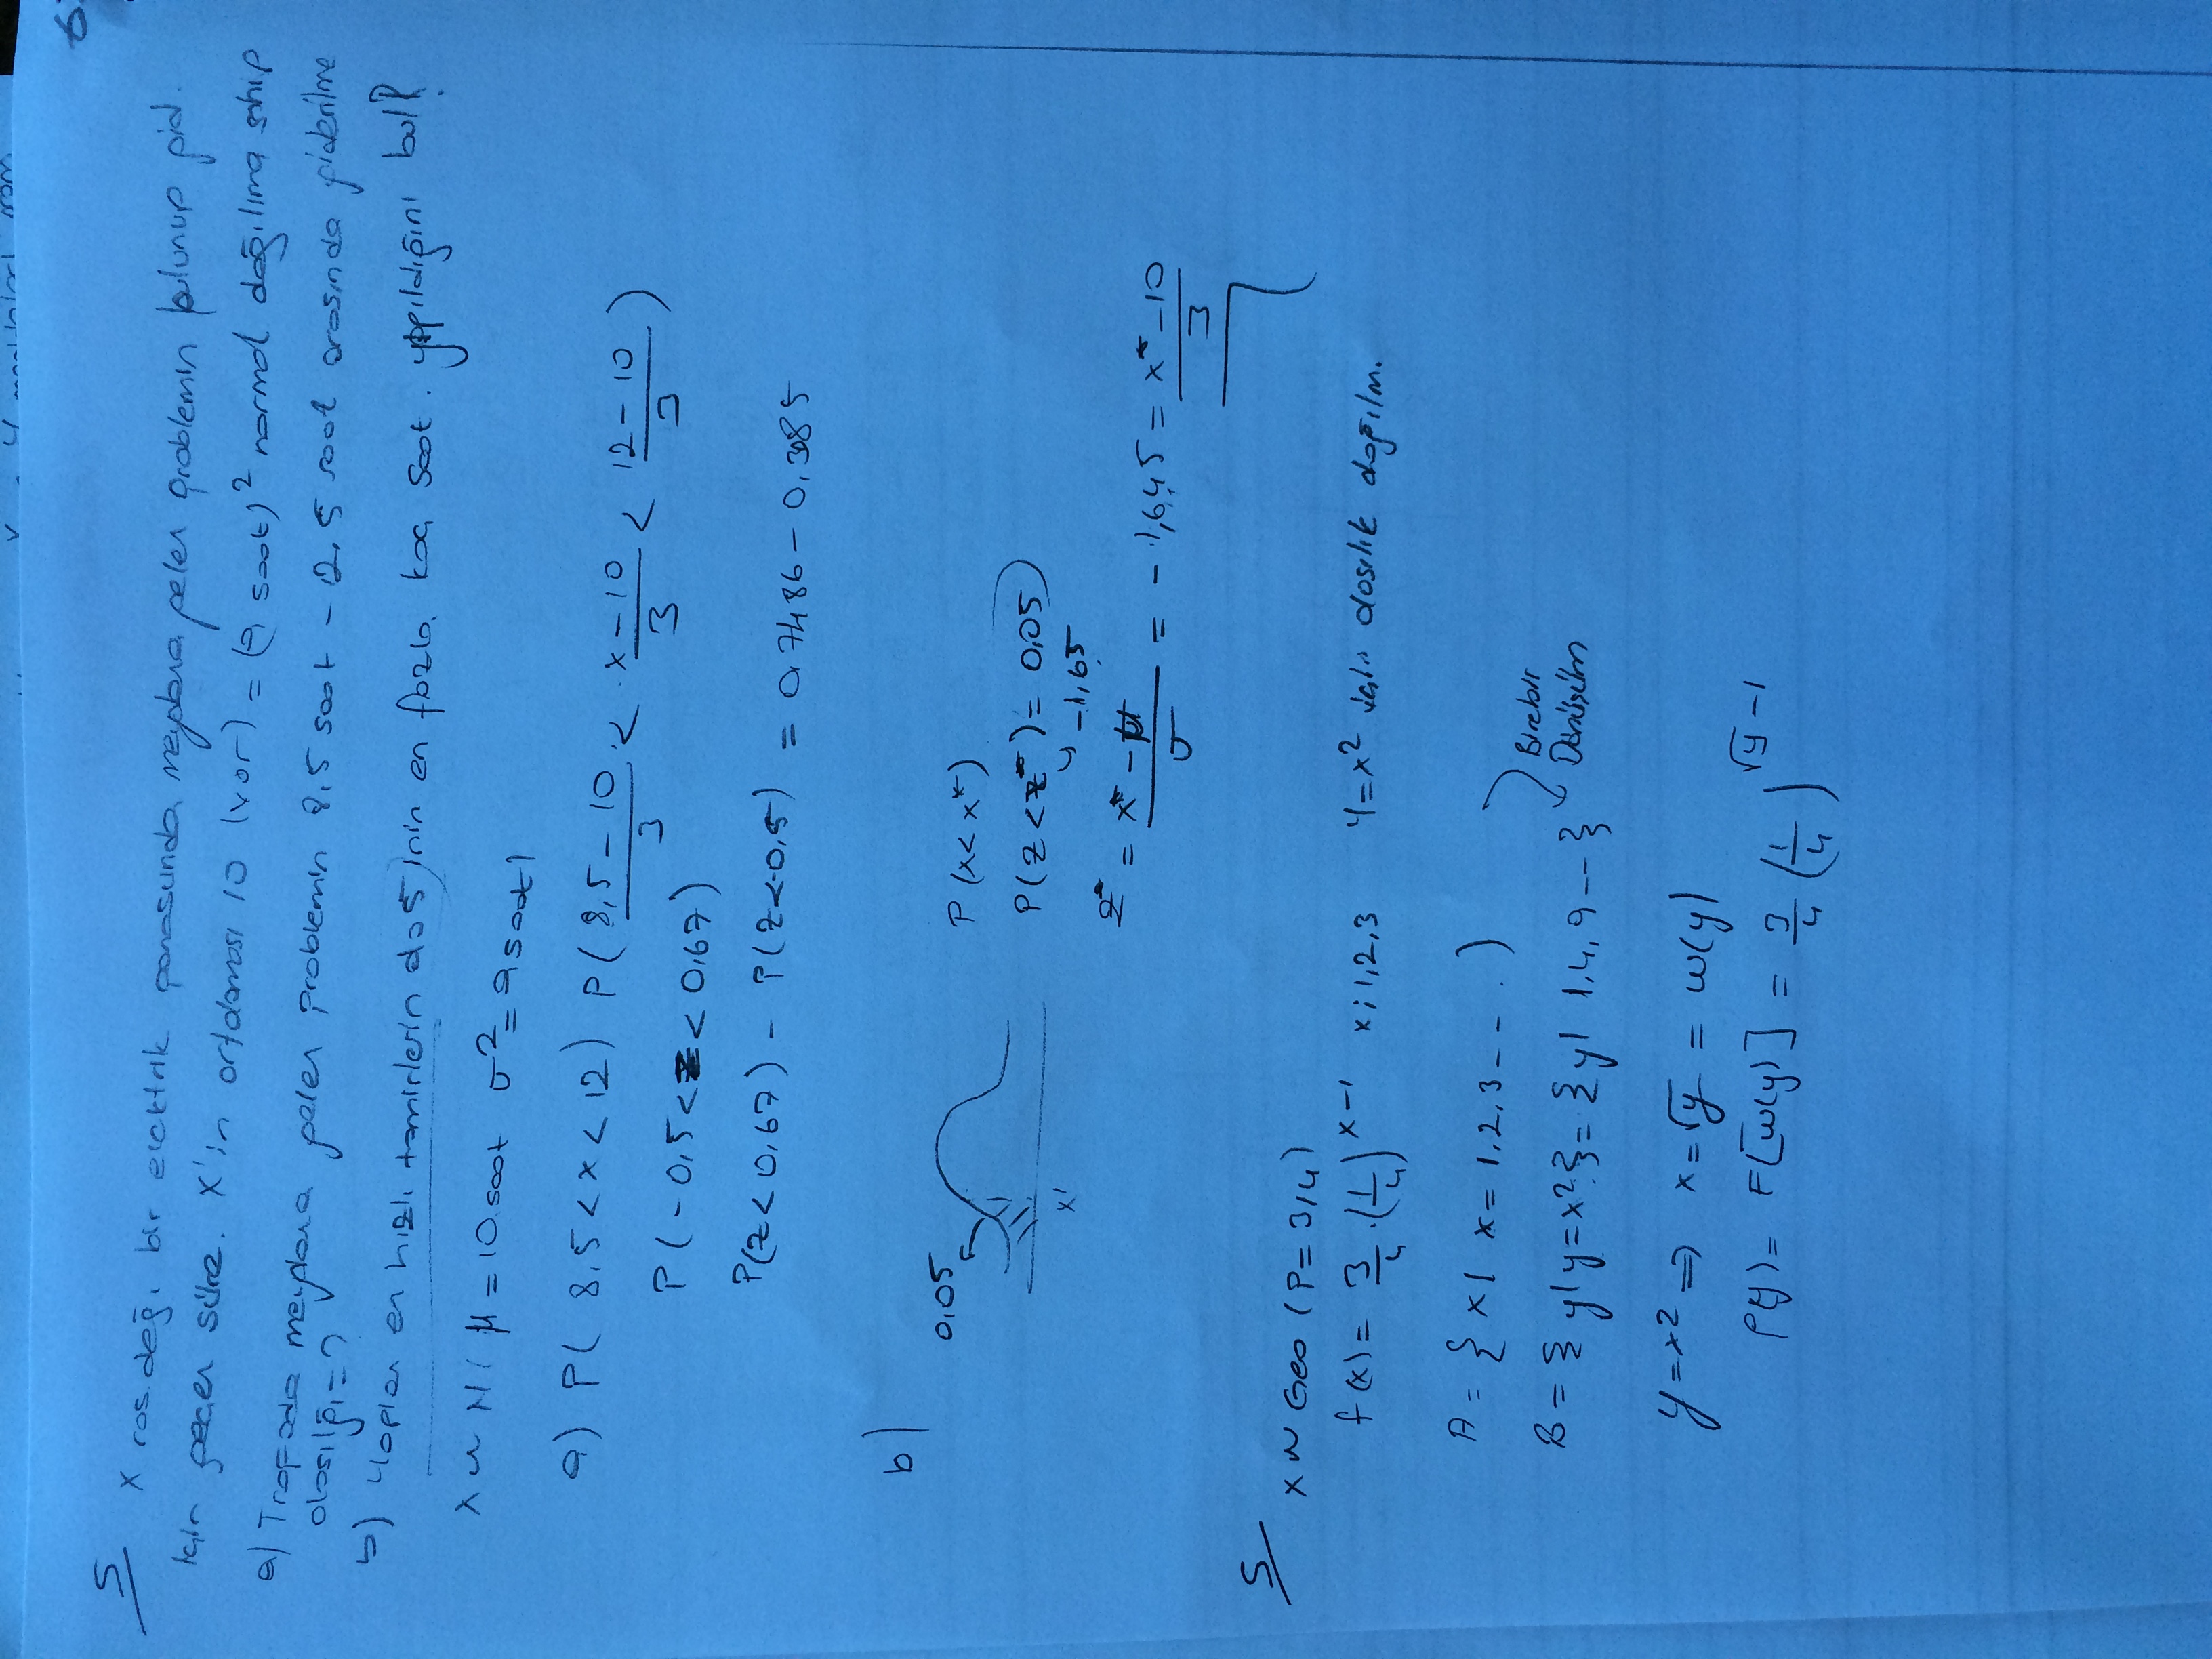 S
x ras.değ. bir elektrik panosunda meydana gelen problemin bulunup gid.
için geçen süre. X'in ortalaması 10 (var) = (9 saat)² normal dağılıma sahip
a) Trafoda meydana gelen problemin 8,5 saat - 12,5 saat arasında giderilme
olasılığı = ?
b) Yapılan en hızlı tamirlerin da 5)inin en fazla kaç saat. yapıldığını bul?
X ~ N( μ = 10 saat σ² = 9 saat)
a) P( 8,5 < x < 12) P( 8,5 - 10 / 3 < x - 10 / 3 < 12 - 10 / 3 )
P( -0,5 < z < 0,67)
P(z < 0,67) - P(z < -0,5) = 0,7486 - 0,3085
b)
0,05
x'
P (x < x*)
P(z < z*) = 0,05)
-1,65
z* = x* - μ / σ = -1,645 = x* - 10 / 3
S
x ~ Geo (P = 3/4)
f(x) = 3/4 . (1/4)^x-1 x; 1,2,3 Y = x² için olasılık dağılm.
A = { x| x = 1,2,3 -- . )
B = { y| y = x² } = { y| 1,4,9 -- }
Birebir
Dönüşüm
y = x² ⇒ x = √y = w(y)
P(y) = F[w(y)] = 3/4 (1/4)^√y - 1